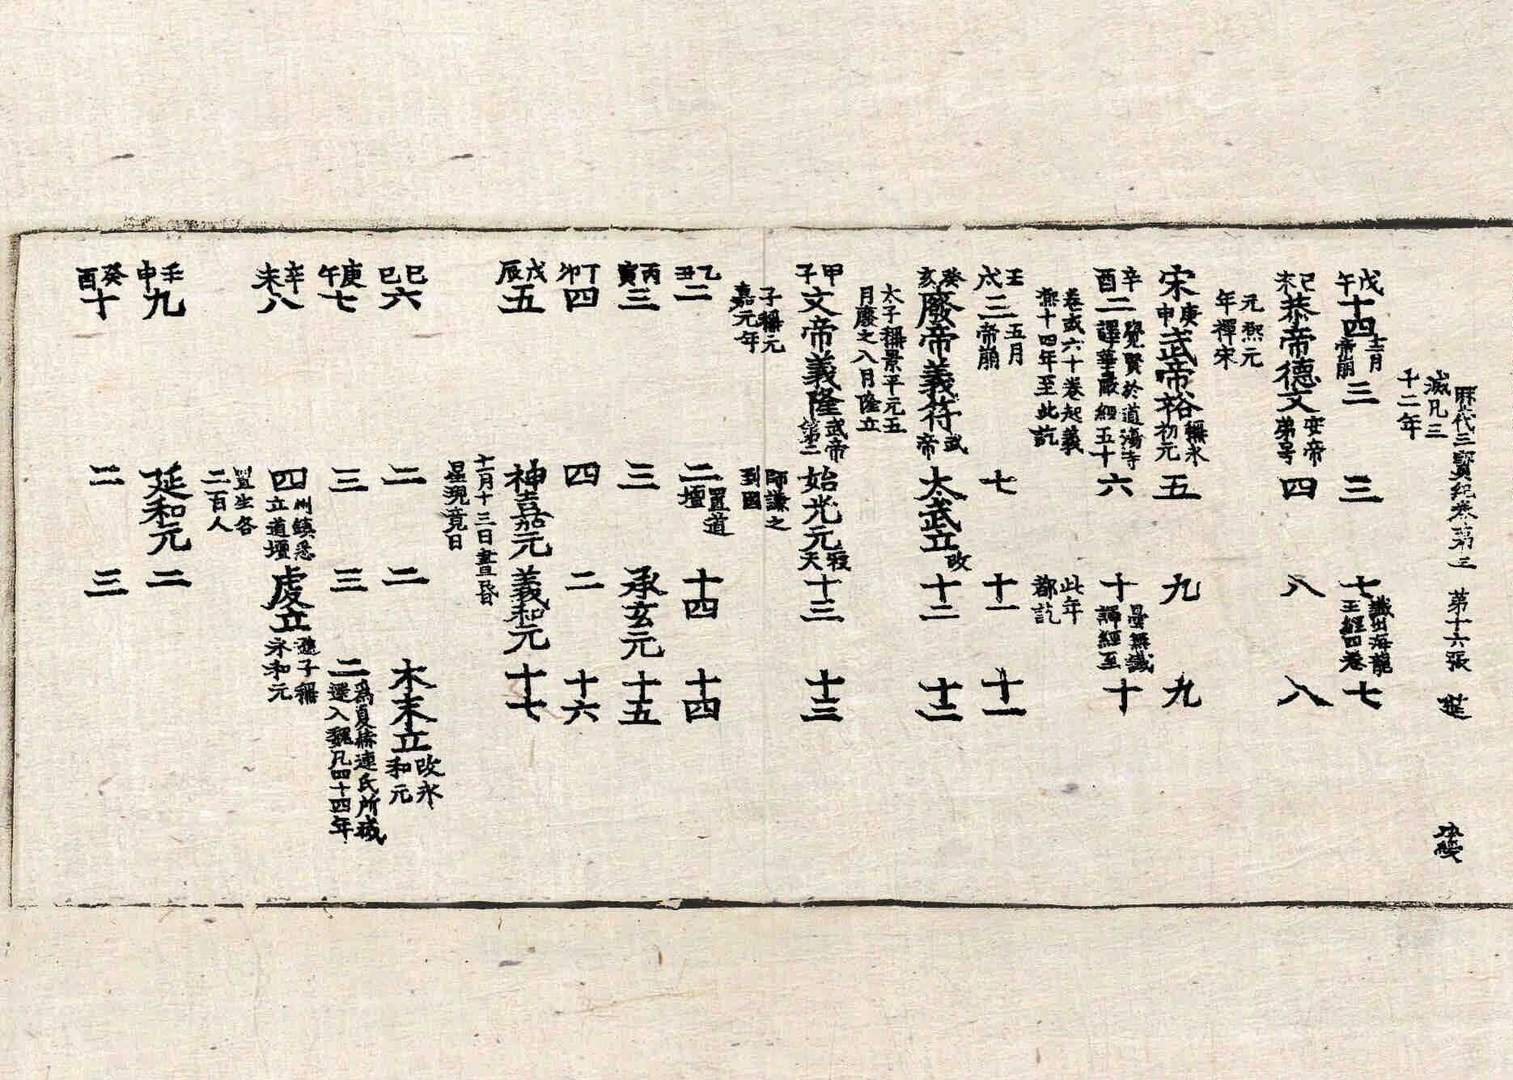 厤代三寶紀卷第三 第十六張
滅凡三
十二年
戊午十四 十二月帝崩 三 三 七 讖出海龍王經四卷 七
己未恭帝德文 安帝弟号 四 八 八
元熙元
年禪宋
宋庚申武帝裕 稱永初元 五 九 九
辛酉二 覺賢於道場寺譯華嚴經五十 六 十 曇無讖譯經至 十
卷或六十卷起義 此年
熙十四年至此訖 都訖
壬戌三 五月帝崩 七 十一 十一
癸亥廢帝義符 武帝 太武立 改 十二 十二
太子稱景平元五
月廢之八月隆立
甲子文帝義隆 武帝第三 始光元 寇天 十三 十三
子稱元 師謙之
嘉元年 到國
乙丑二 二 置道壇 十四 十四
丙寅三 三 承玄元 十五
丁卯四 四 二 十六
戊辰五 神𪊽元 義和元 十七
十一月十三日晝昏
星現竟日
己巳六 二 二 木末立 改永和元
庚午七 三 三 二 爲夏赫連氏所滅還入魏凡四十四年
辛未八 四 州鎮悉立道壇 虔立 遜子稱永和元
置生各
二百人
壬申九 延和元 二
癸酉十 二 三